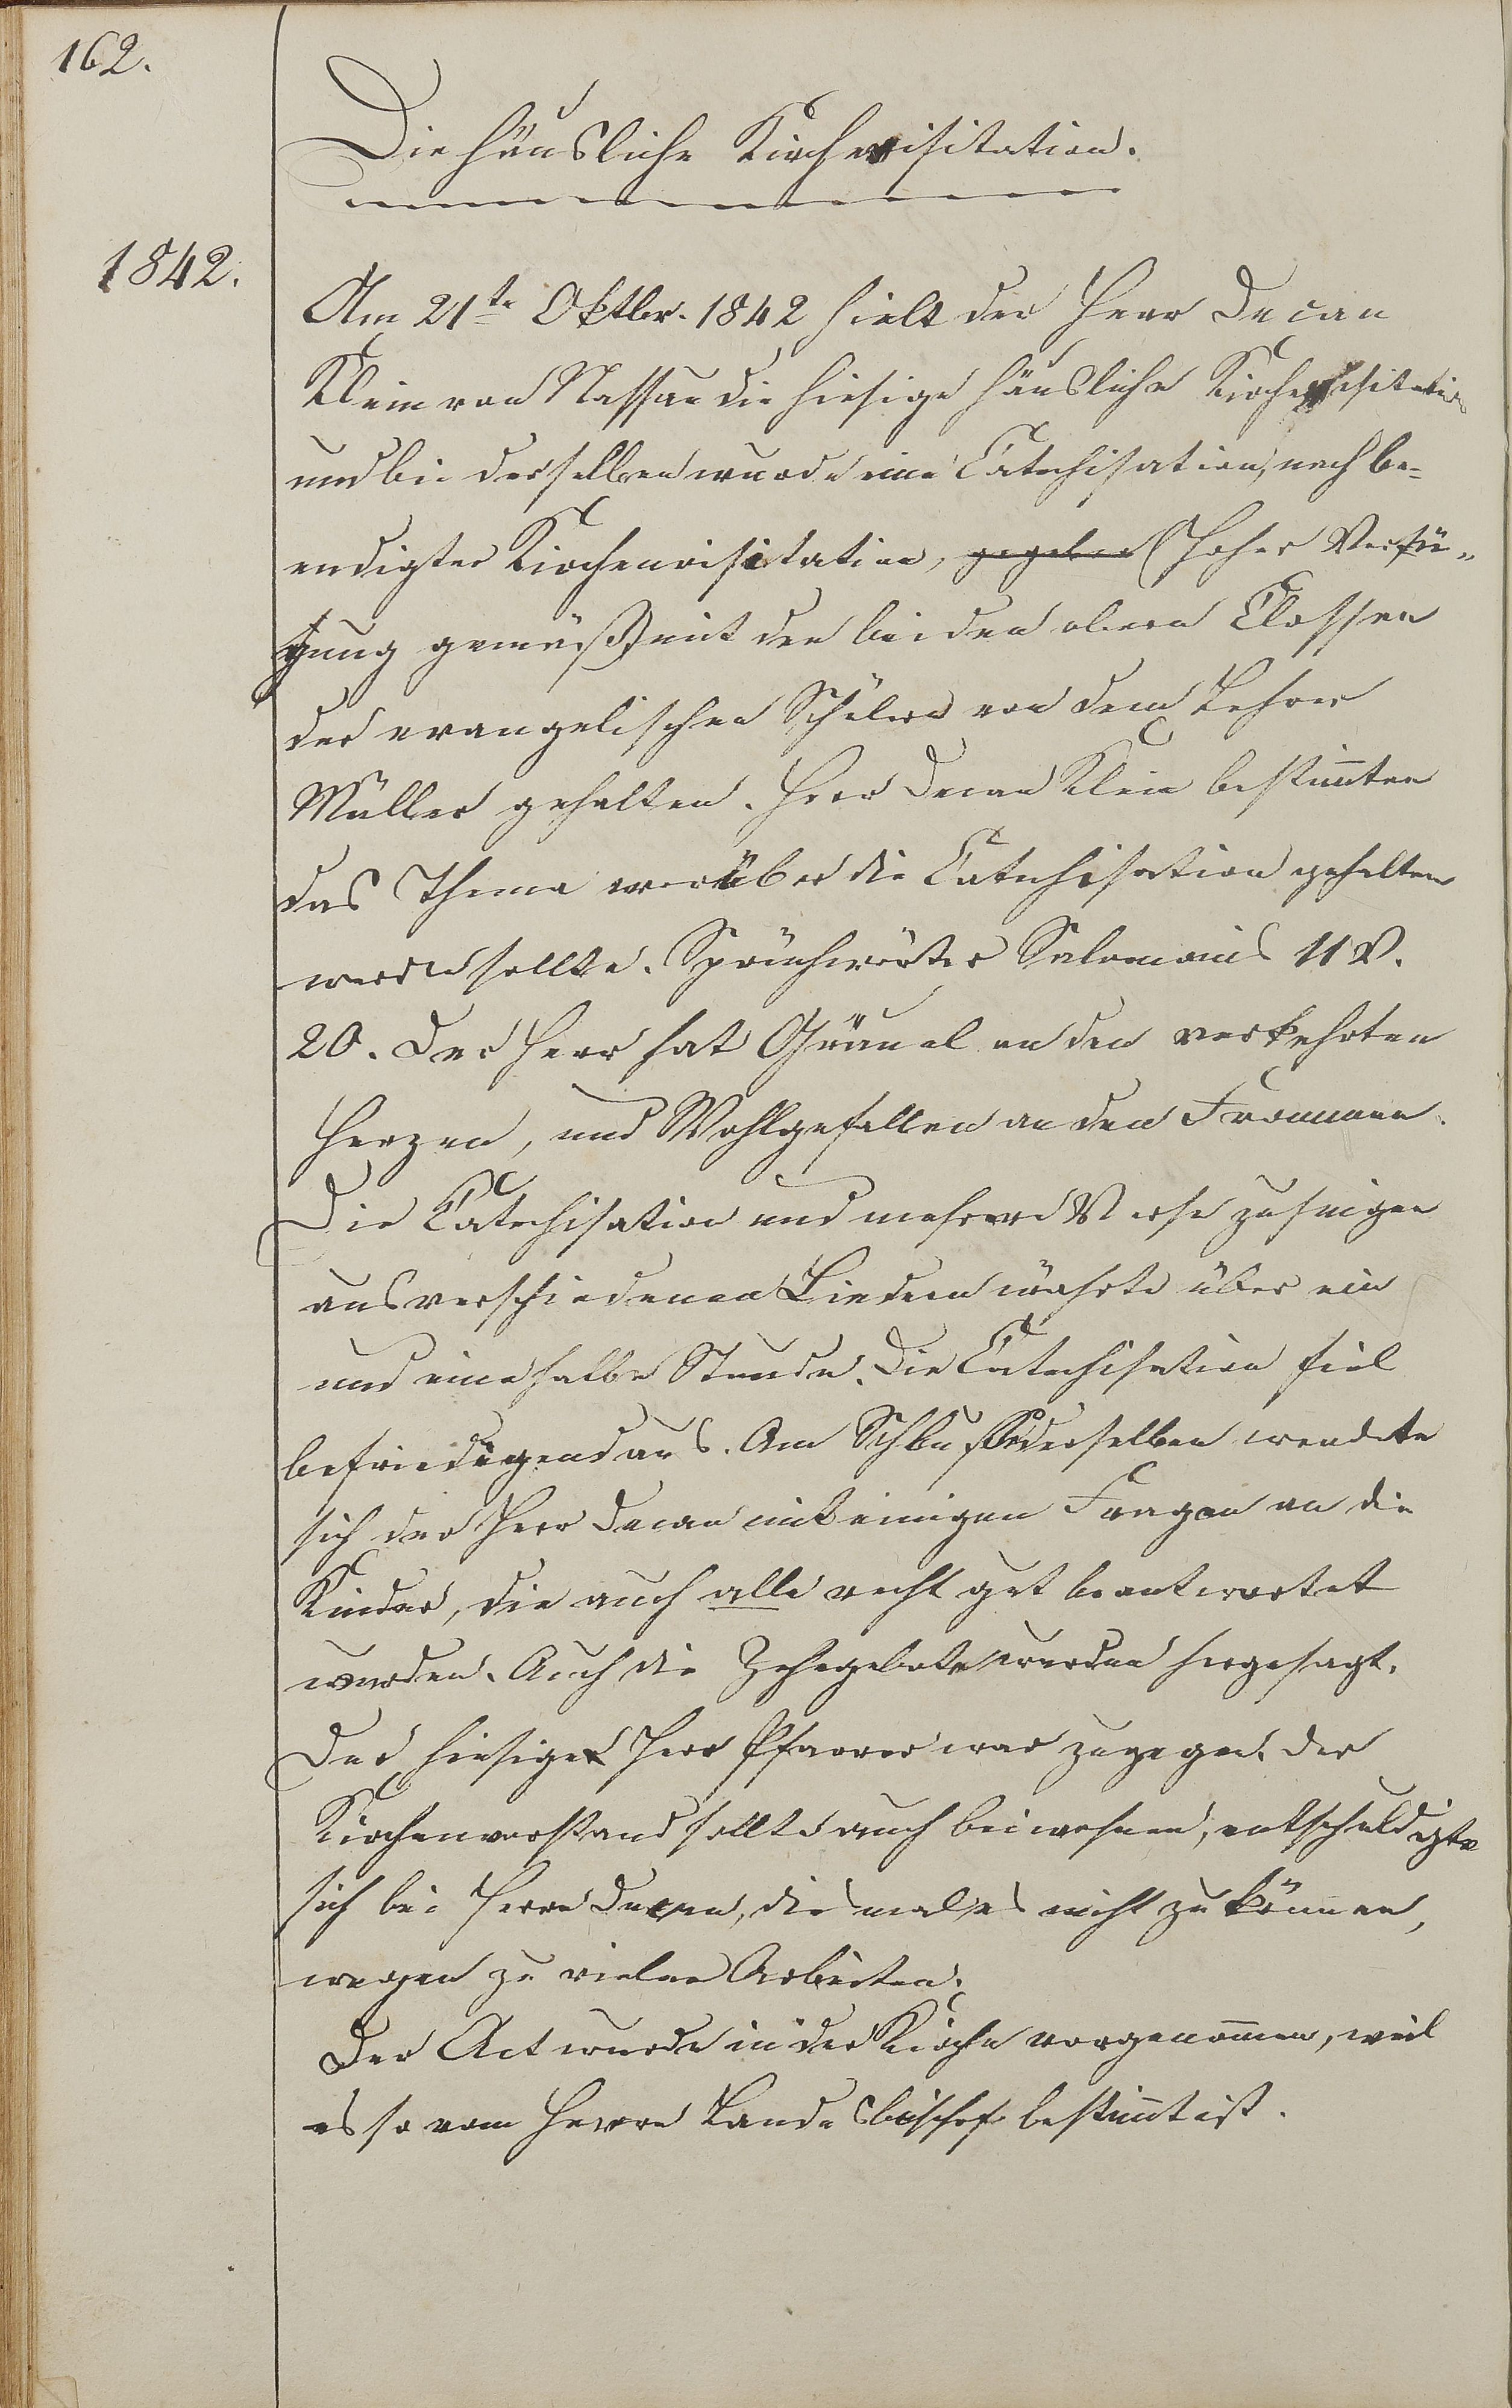 162.
Die häusliche Kirchenvisitation.
1842.
Am 21te Oktbr. 1842 hielt der Herr Decan
Klein von Nassau die hiesige häusliche Kirchenvisitation
und bei derselben wurde eine Catechisation, nach be-
endigter Kirchenvisitation, gegeben (hoher Verfü-
gung gemäß) mit den beiden obern Classen
der evangelischen Schülern von dem Lehrer
Müller gehalten. Herr Decan Klein bestimten
das Thema worüber die Catechisation gehalten
werden sollte. Sprüchwörter Salomonis 11 V.
20. Der Herr hat Gräuel an den verkehrten
Herzen, und Wohlgefallen an den Frommen.
Die Catechisation und mehrere Verse zu singen
aus verschiedenen Liedern währte über ein
und eine halbe Stunde. Die Catechisation fiel
befriedigend aus. Am Schluße derselben wendete
sich der Herr Decan mit einigen Fragen an die
Kinder, die auch alle recht gut beantwortet
wurden. Auch die Zehngebote wurden hergesagt.
Der hiesige Herr Pfarrer war zugegen. Der
Kirchenvorstand sollte auch beiwohnen, entschuldigte
sich bei Herrn Decan, diesmal es nicht zu können,
wegen zu vielen Arbeiten.
Der Act wurde in der Kirche vorgenommen, weil
es so vom Herrn Landesbischof bestimt ist.